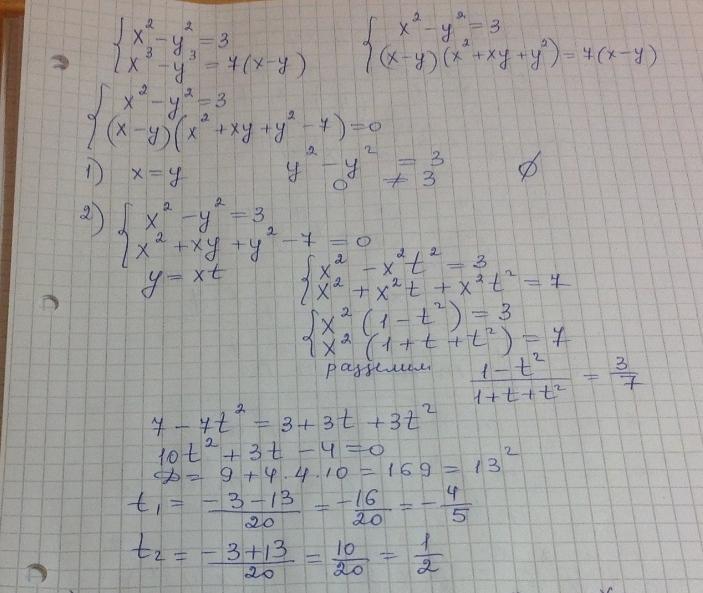 { x² - y² = 3    { x² - y² = 3
{ x³ - y³ = 7(x-y)    { (x-y)(x²+xy+y²) = 7(x-y)
{ x² - y² = 3
{ (x-y)(x²+xy+y²-7) = 0
1) x = y    y² - y² = 3    ∅
0 ≠ 3
2) { x² - y² = 3
{ x² + xy + y² - 7 = 0
y = xt    { x² - x²t² = 3
{ x² + x²t + x²t² = 7
{ x²(1-t²) = 3
{ x²(1+t+t²) = 7
разделим    (1-t²)/(1+t+t²) = 3/7
7 - 7t² = 3 + 3t + 3t²
10t² + 3t - 4 = 0
D = 9 + 4·4·10 = 169 = 13²
t₁ = (-3-13)/20 = -16/20 = -4/5
t₂ = (-3+13)/20 = 10/20 = 1/2